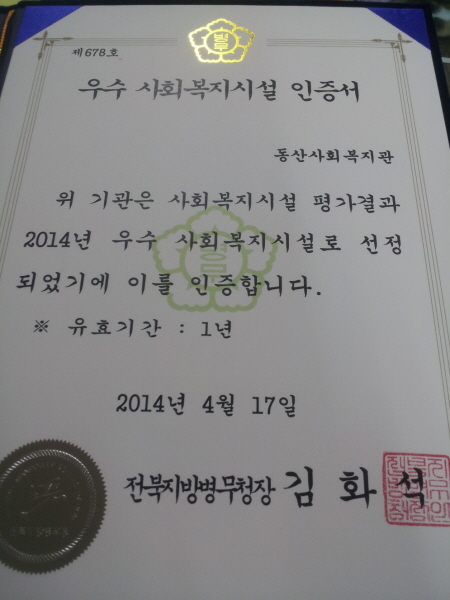 제678호
우수 사회복지시설 인증서
동산사회복지관
위 기관은 사회복지시설 평가결과
2014년 우수 사회복지시설로 선정
되었기에 이를 인증합니다.
※ 유효기간 : 1년
2014년 4월 17일
전북지방병무청장 김화석